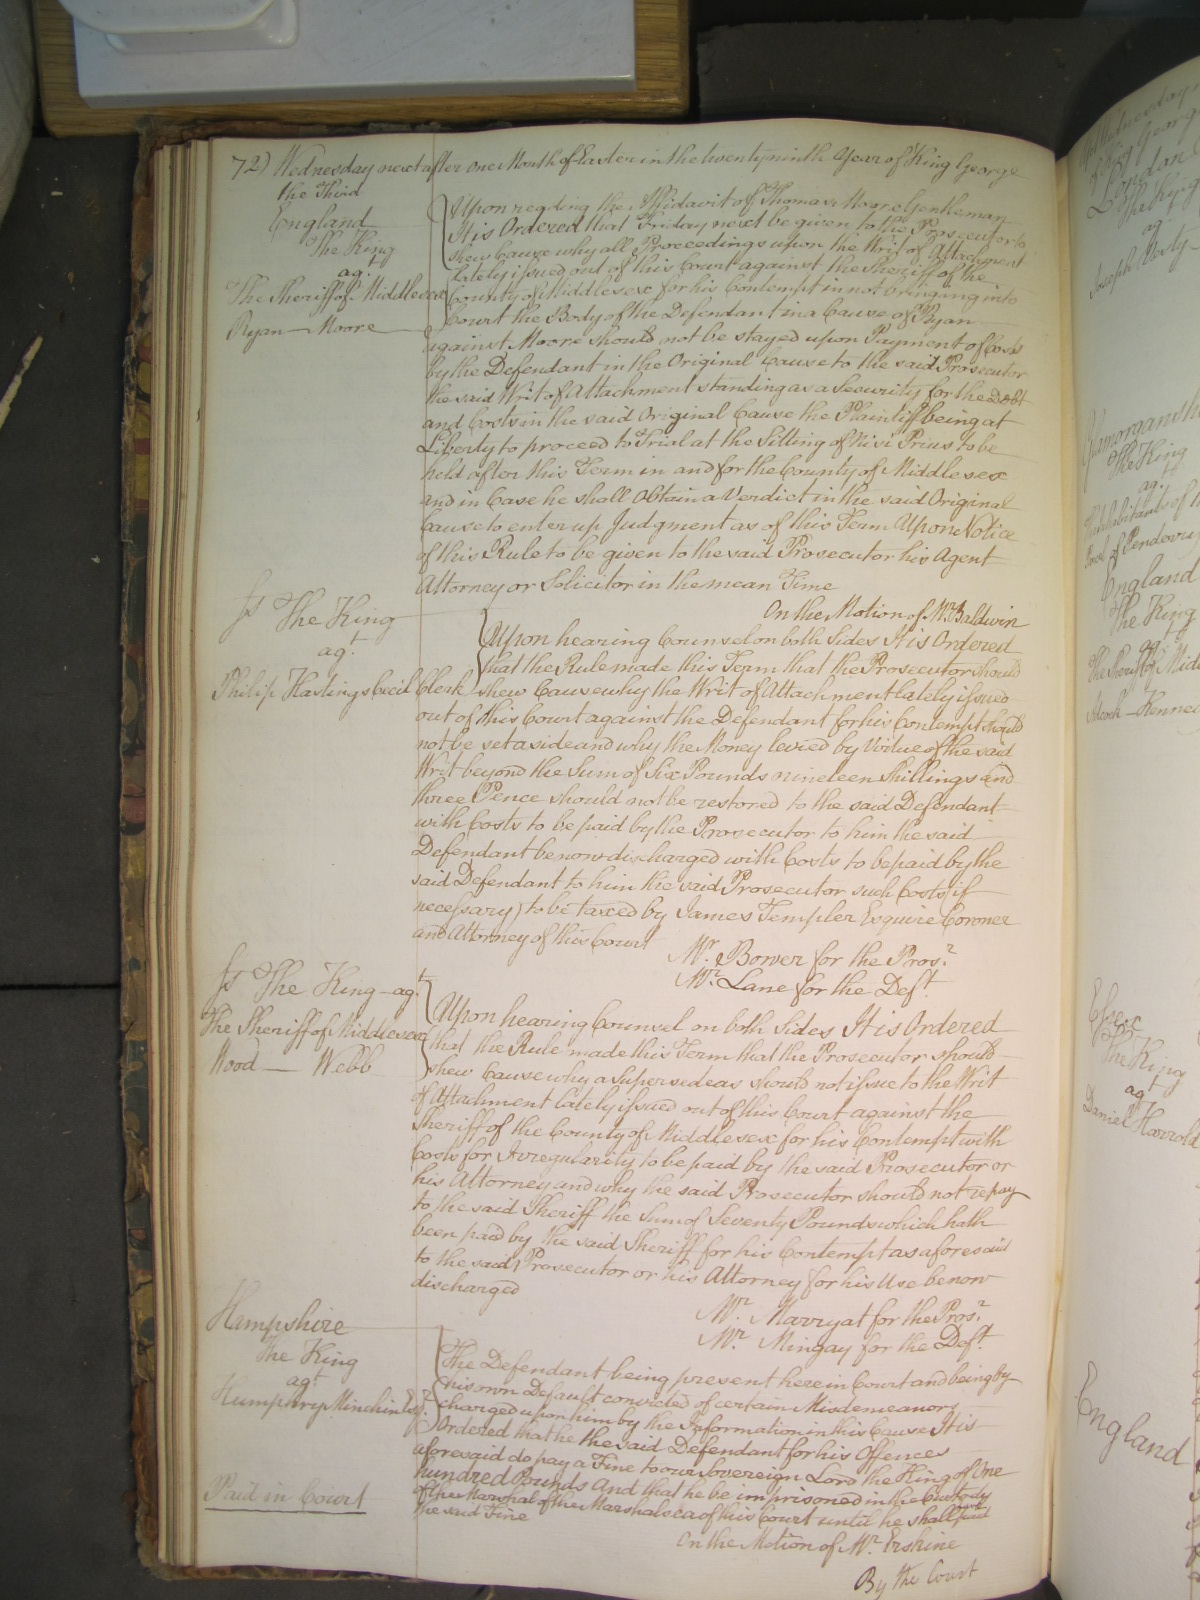 72) Wednesday next after one Month of Easter in the twenty ninth Year of King George
the Third
England
The King
agt.
The Sheriff of Middlesex
Ryan — Moore
Upon reading the Affidavit of Thomas Moore Gentleman
It is Ordered that Friday next be given to the Prosecutor to
shew Cause why all Proceedings upon the Writ of Attachment
lately issued out of this Court against the Sheriff of the
County of Middlesex for his Contempt in not bringing into
Court the Body of the Defendant in a Cause of Ryan
against Moore should not be stayed upon Payment of Costs
by the Defendant in the Original Cause to the said Prosecutor
the said Writ of Attachment standing as a Security for the Debt
and Costs in the said Original Cause the Plaintiff being at
Liberty to proceed to Trial at the Sitting of Nisi Prius to be
held after this Term in and for the County of Middlesex
and in Case he shall obtain a Verdict in the said Original
Cause to enter up Judgment as of this Term Upon Notice
of this Rule to be given to the said Prosecutor his Agent
Attorney or Solicitor in the mean Time
On the Motion of Mr. Baldwin
The King
agt.
Philip Hastings Cecil Clerk
Upon hearing Counsel on both Sides It is Ordered
that the Rule made this Term that the Prosecutor should
shew Cause why the Writ of Attachment lately issued
out of this Court against the Defendant for his Contempt should
not be set aside and why the Money levied by Virtue of the said
Writ beyond the Sum of Six Pounds nineteen Shillings and
three Pence should not be restored to the said Defendant
with Costs to be paid by the Prosecutor to him the said
Defendant be now discharged with Costs to be paid by the
said Defendant to him the said Prosecutor such Costs (if
necessary) to be taxed by James Templer Esquire Coroner
and Attorney of this Court
Mr. Bower for the Prosr.
Mr. Lane for the Deft.
The King — agt.
The Sheriff of Middlesex
Wood — Webb
Upon hearing Counsel on both Sides It is Ordered
that the Rule made this Term that the Prosecutor should
shew Cause why a Supersedeas should not issue to the Writ
of Attachment lately issued out of this Court against the
Sheriff of the County of Middlesex for his Contempt with
Costs for Irregularity to be paid by the said Prosecutor or
his Attorney and why the said Prosecutor should not repay
to the said Sheriff the Sum of Seventy Pounds which hath
been paid by the said Sheriff for his Contempt as aforesaid
to the said Prosecutor or his Attorney for his Use be now
discharged
Mr. Marryat for the Prosr.
Mr. Mingay for the Deft.
Hampshire
The King
agt.
Humphry Minchin Esqr.
The Defendant being present here in Court and being by
his own Default convicted of certain Misdemeanors
charged upon him by the Information in this Cause It is
Ordered that he the said Defendant for his Offences
aforesaid do pay a Fine to our Sovereign Lord the King of One
hundred Pounds And that he be imprisoned in the Custody
of the Marshal of the Marshalsea of this Court until he shall paid
the said Fine
Paid in Court
On the Motion of Mr. Erskine
By the Court
Wednesday
George
London
The King
ag
Joseph
The King
agt.
Inhabitants of
of Penderry
England
The King
agt
The Sheriff of Midd
Kenned
Essex
The King
agt
Daniel Harrold
England